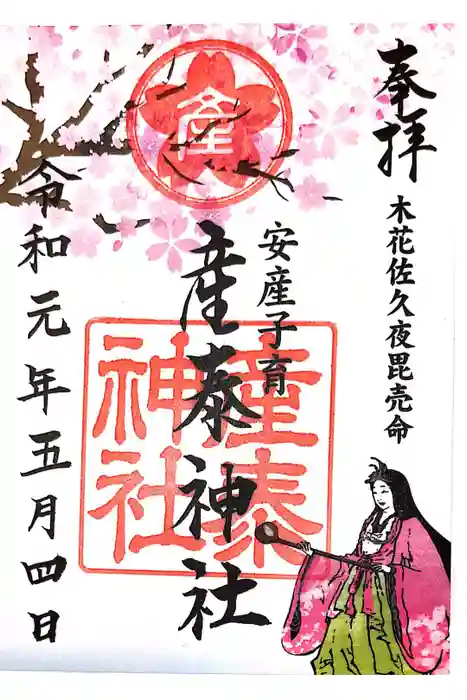 奉拝
木花佐久夜毘売命
安産子育
産泰神社
令和元年五月四日
産
産泰
神社